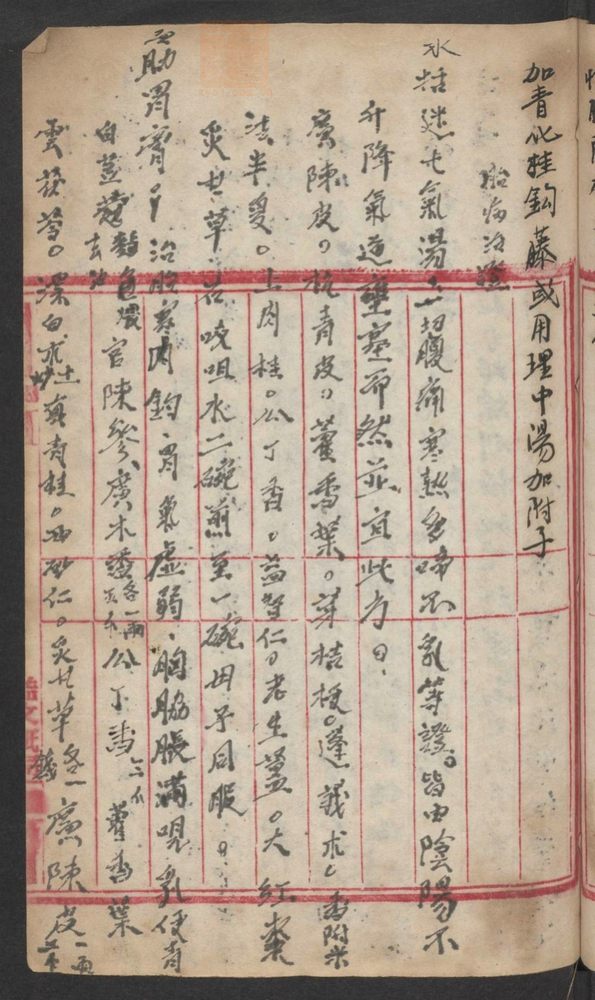 加青化桂鈎藤或用理中湯加附子
胎病治
木括迷七氣湯 一切腹痛寒熱多啼不乳等證皆由陰陽不
升降氣道壅塞而然並宜此方
廣陳皮 杭青皮 藿香葉 芽桔梗 蓬莪朮 香附米
法半夏 上肉桂 公丁香 益智仁 老生薑 大紅棗
炙甘草 右咬咀水二碗煎至一碗母子同服
助胃膏 治胎寒內鈎胃氣虛弱胸脇脹滿哯乳便青
白荳蔻 去油 官陳參 廣木香 各一兩 公丁香 藿香葉
雲茯苓 漂白朮 土炒 真青桂 西砂仁 炙甘草 各一 廣陳皮 一兩